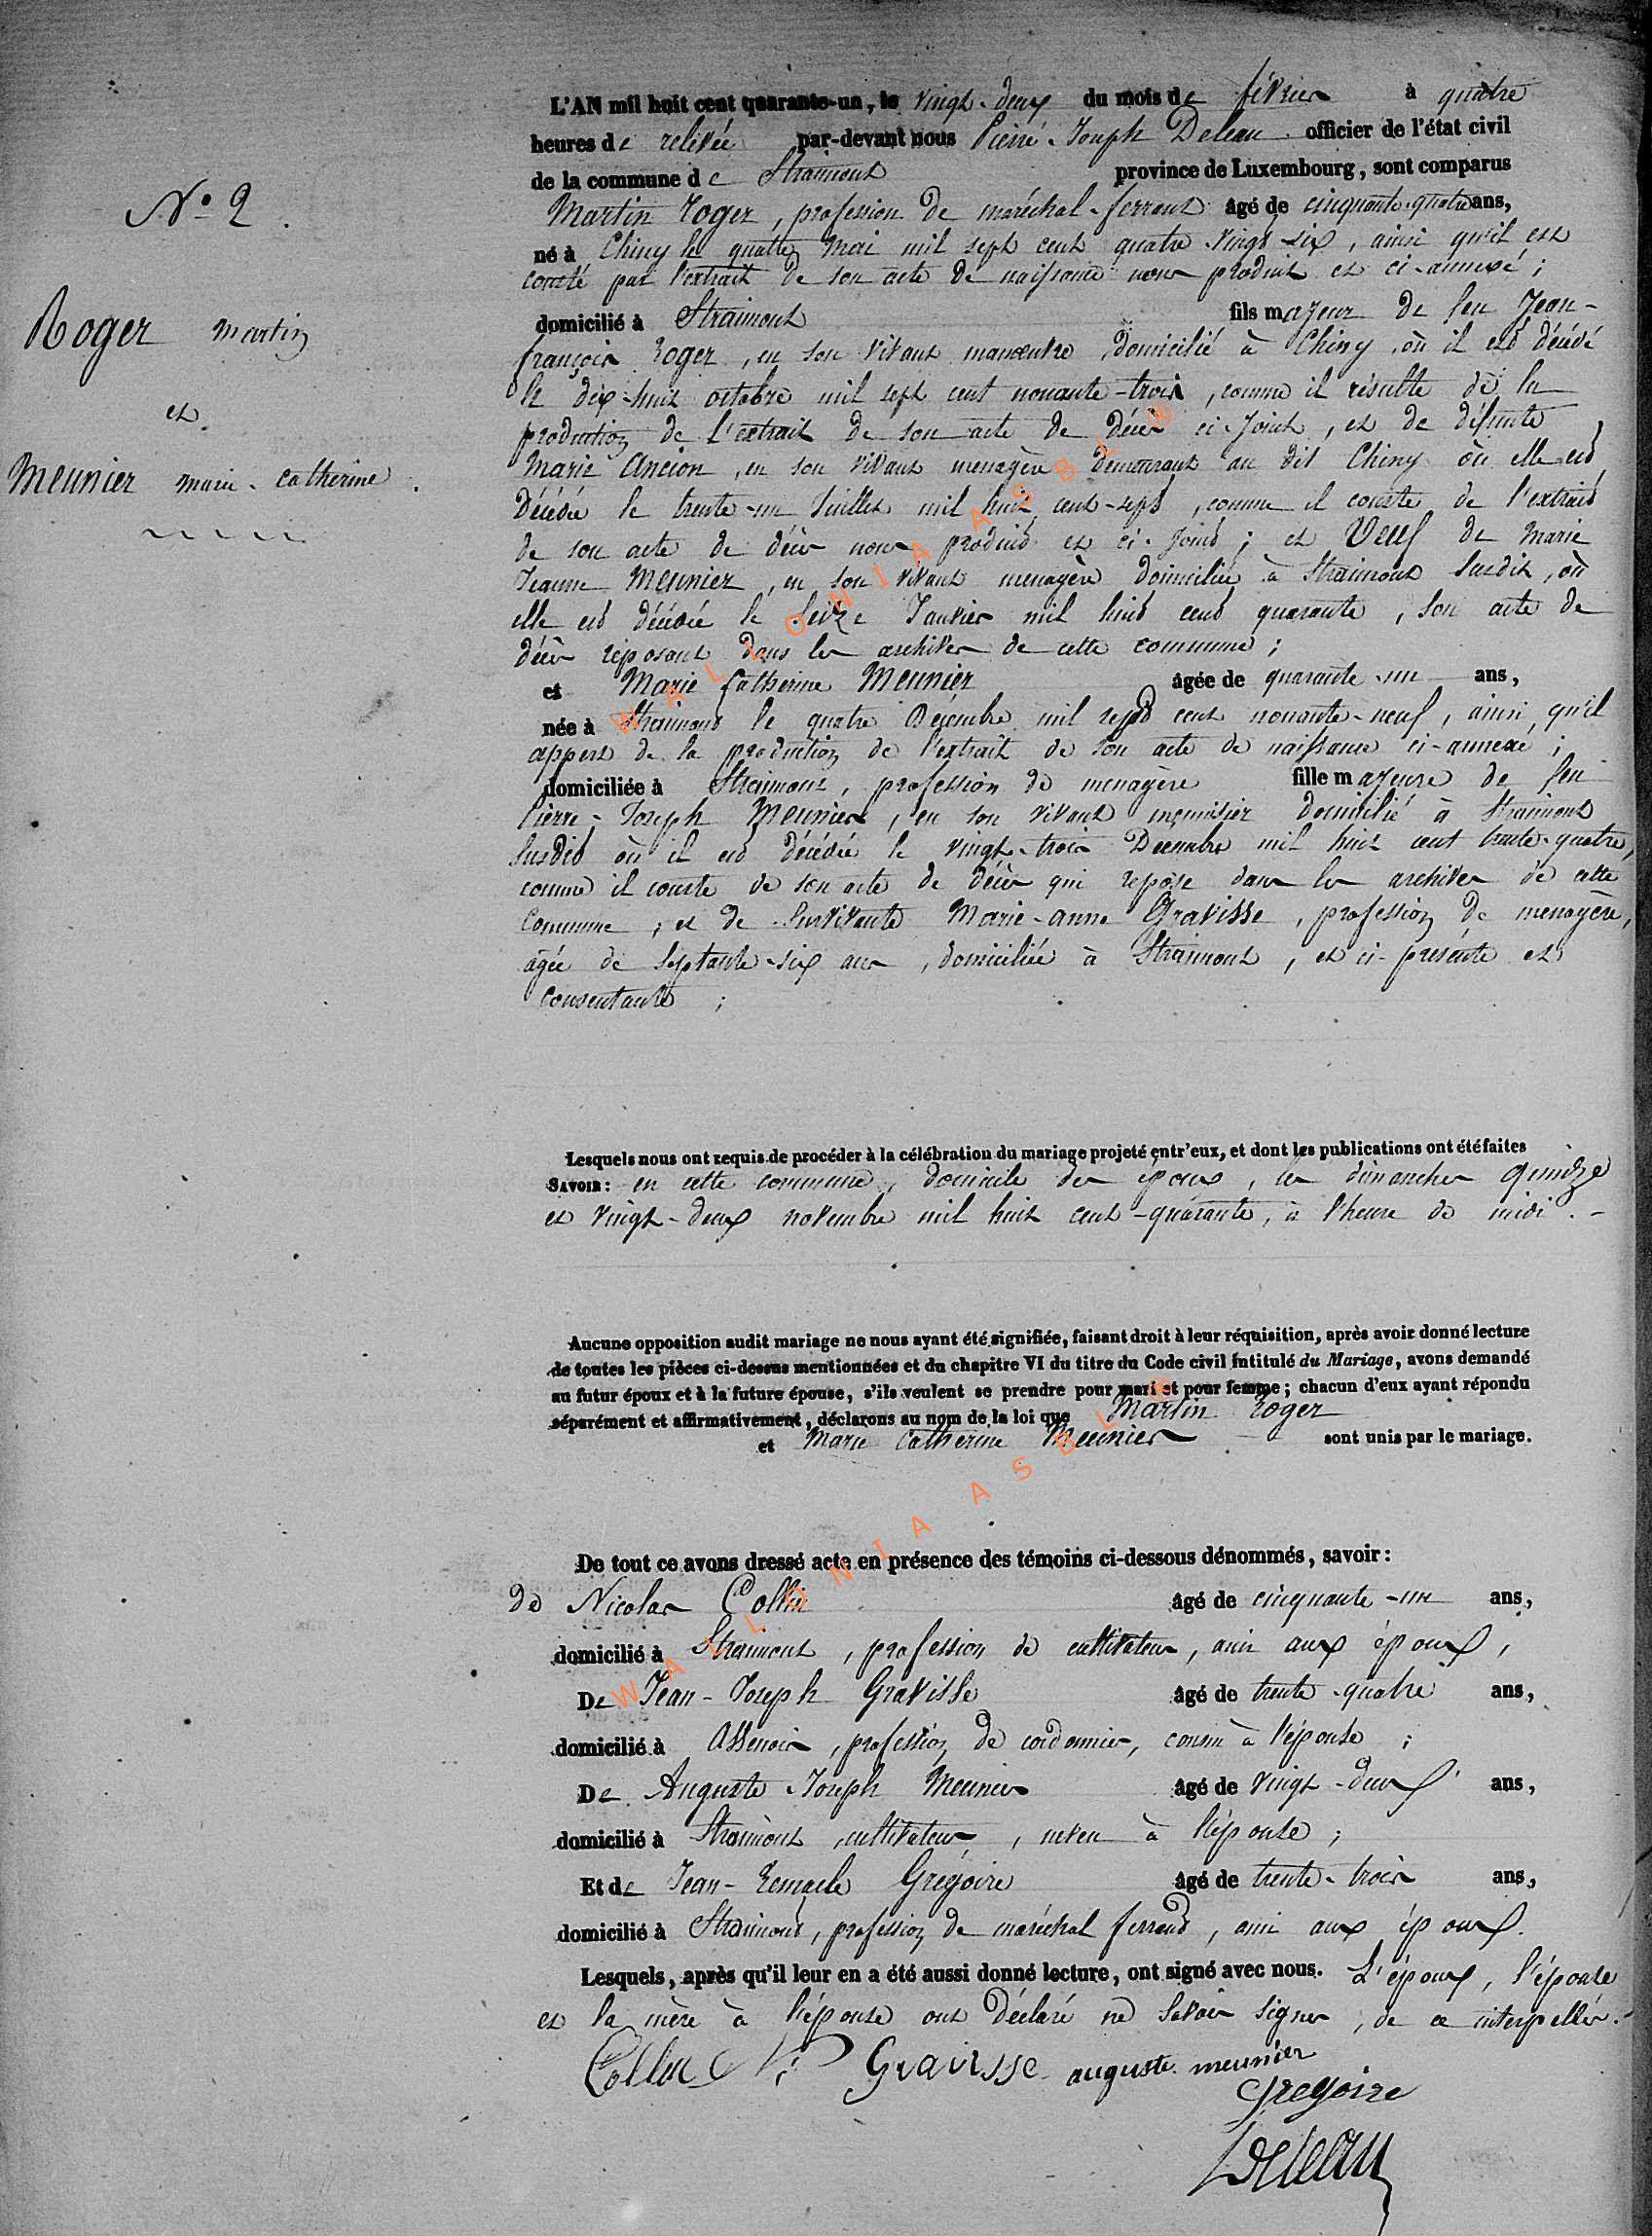 N.º 2.
Roger martin
et
Meunier marie-catherine.
L'AN mil huit cent quarante-un, le vingt-deux du mois de février à quatre
heures de relevée par-devant nous Pierre-Joseph Deleau officier de l'état civil
de la commune de Straimont province de Luxembourg, sont comparus
Martin Roger, profession de maréchal-ferrant âgé de cinquante-quatre ans,
né à Chiny le quatre mai mil sept cent quatre-vingt-six, ainsi qu'il est
consté par l'extrait de son acte de naissance nous produit et ci-annexé;
domicilié à Straimont fils majeur de feu Jean-
françois Roger, en son vivant manœuvre, domicilié à Chiny, où il est décédé
le dix-huit octobre mil sept cent nonante-trois, comme il résulte de la
production de l'extrait de son acte de décès ci-joint, et de défunte
Marie Ancion, en son vivant menagère demeurant au dit Chiny où elle est
décédée le trente-un Juillet mil huit cent-sept, comme il conste de l'extrait
de son acte de décès nous produit et ci-joint; et Veuf de Marie
Jeanne Meunier, en son vivant menagère domiciliée à Straimont susdit, où
elle est décédée le seize Janvier mil huit cent quarante, son acte de
décès reposant dans les archives de cette commune;
et Marie Catherine Meunier âgée de quarante-un ans,
née à Straimont le quatre Décembre mil sept cent nonante-neuf, ainsi qu'il
appert de la production de l'extrait de son acte de naissance ci-annexé;
domiciliée à Straimont, profession de menagère fille majeure de feu
Pierre-Joseph Meunier, en son vivant menuisier domicilié à Straimont
susdit où il est décédée le vingt-trois Décembre mil huit cent trente-quatre,
comme il conste de son acte de décès qui repose dans les archives de cette
commune; et de survivante Marie-anne Gravisse, profession de menagère,
agée de septante-six ans, domiciliée à Straimont, et ci-présente et
consentante;
Lesquels nous ont requis de procéder à la célébration du mariage projeté entr'eux, et dont les publications ont été faites
SAVOIR: en cette commune, domicile des époux, les dimanches quinze
et vingt-deux novembre mil huit cent-quarante, à l'heure de midi.-
Aucune opposition audit mariage ne nous ayant été signifiée, faisant droit à leur réquisition, après avoir donné lecture
de toutes les pièces ci-dessus mentionnées et du chapitre VI du titre du Code civil intitulé du Mariage, avons demandé
au futur époux et à la future épouse, s'ils veulent se prendre pour mari et pour femme; chacun d'eux ayant répondu
séparément et affirmativement, déclarons au nom de la loi que Martin Roger
et Marie Catherine Meunier sont unis par le mariage.
De tout ce avons dressé acte en présence des témoins ci-dessous dénommés, savoir:
de Nicolas Collin âgé de cinquante-un ans,
domicilié à Straimont, profession de cultivateur, ami aux époux,
De Jean-Joseph Gravisse âgé de trente-quatre ans,
domicilié à Assenois, profession de cordonnier, cousin à l'épouse;
De Auguste-Joseph Meunier âgé de vingt-deux ans,
domicilié à Straimont, cultivateur, neveu à l'épouse;
Et de Jean-Remacle Grégoire âgé de trente-trois ans,
domicilié à Straimont, profession de maréchal ferrand, ami aux époux.
Lesquels, après qu'il leur en a été aussi donné lecture, ont signé avec nous. L'époux, l'épouse
et la mère à l'épouse ont déclaré ne savoir signer, de ce interpellés.
Collin N: Gravisse auguste meunier
Gregoire
Deleau
WALLONIA ASBL ®
WALLONIA ASBL ®